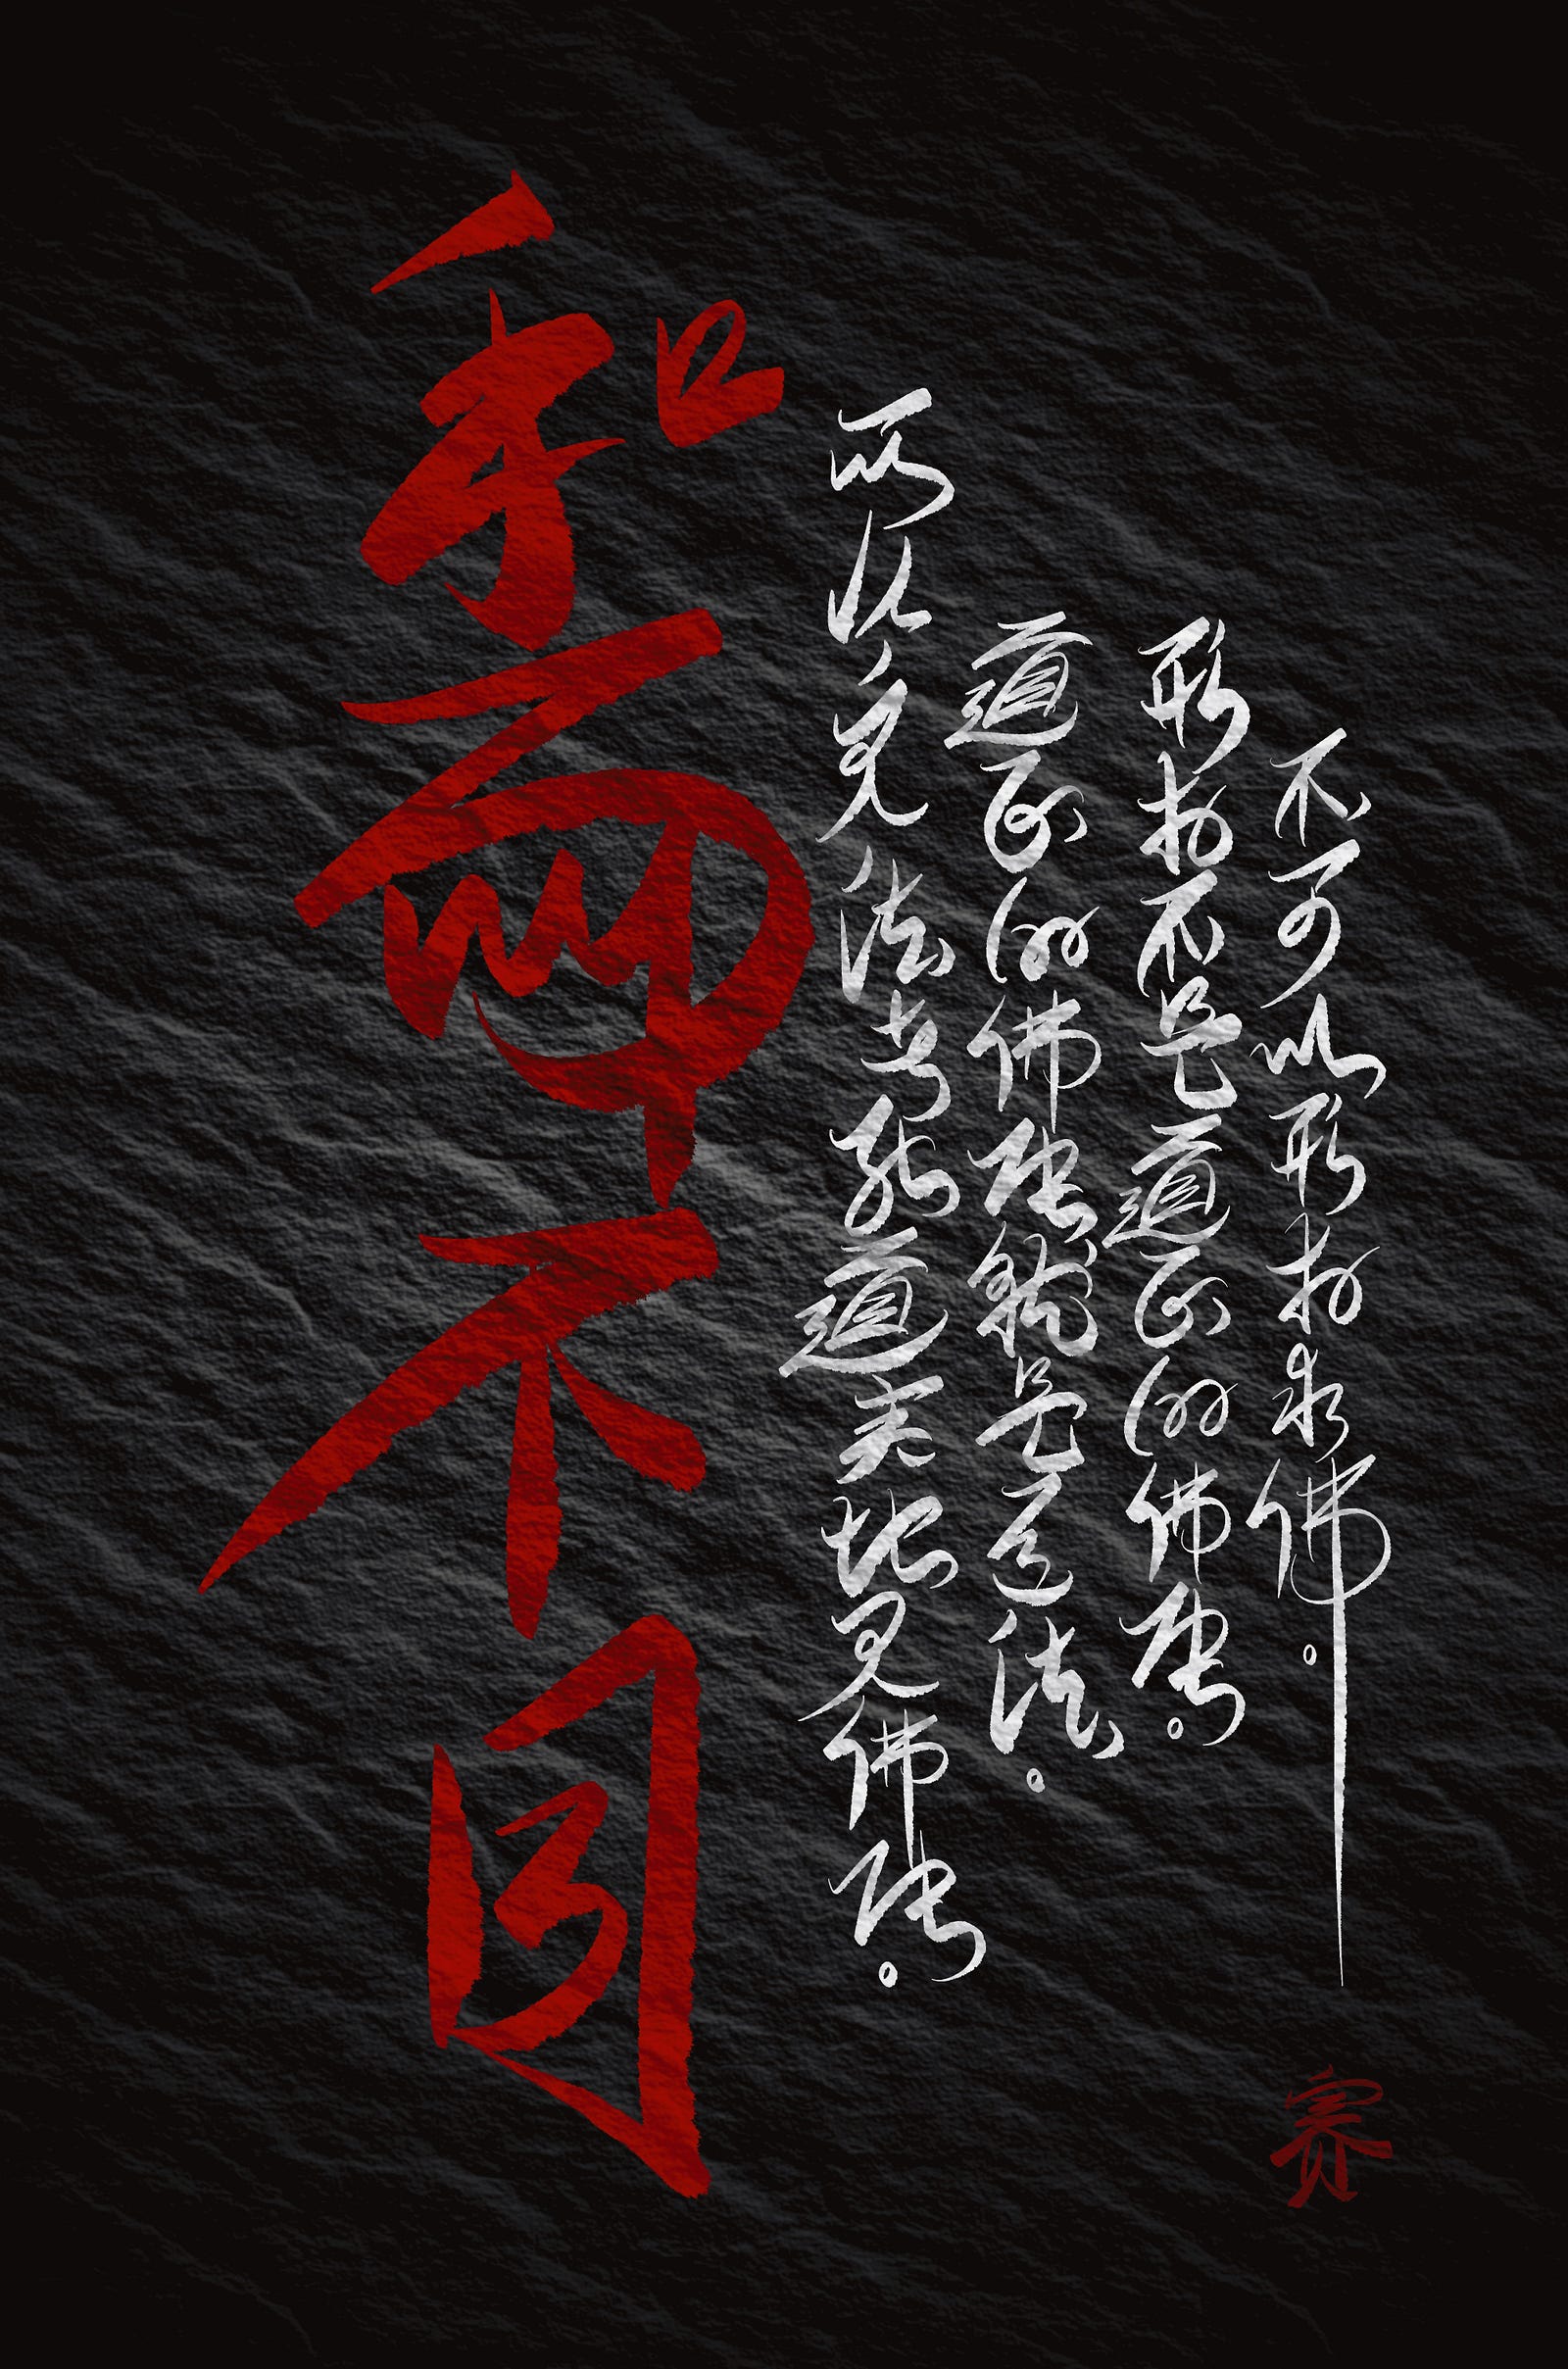 不可以形相求佛。
形相不是真正的佛陀。
真正的佛陀就是法。
所以见法者能真实地见佛陀。
和而不同
赛